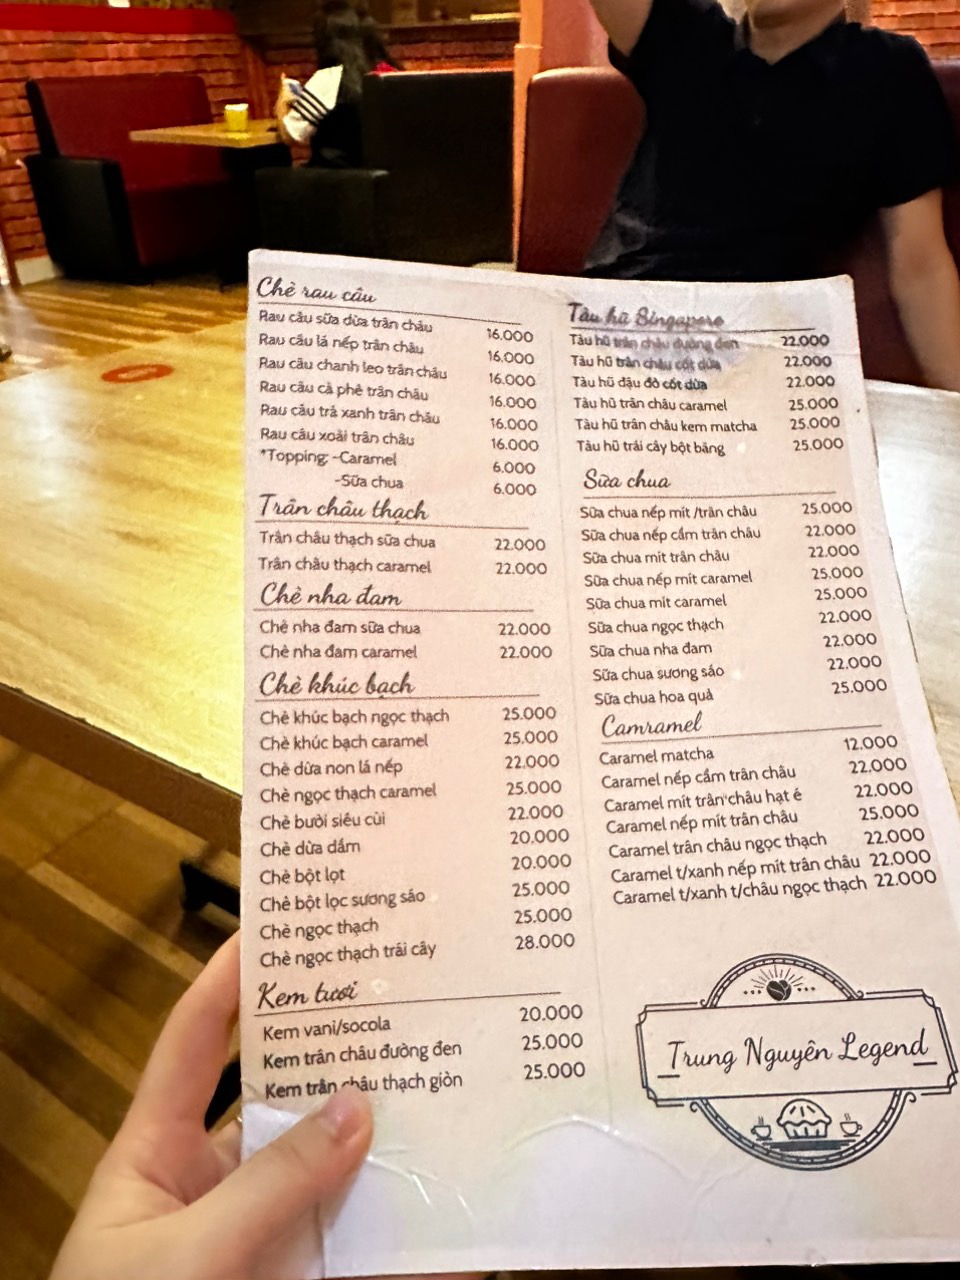 Chè rau câu
Rau câu sữa dừa trân châu 16.000
Rau câu lá nếp trân châu 16.000
Rau câu chanh leo trân châu 16.000
Rau câu cà phê trân châu 16.000
Rau câu trà xanh trân châu 16.000
Rau câu xoài trân châu 16.000
*Topping: -Caramel 6.000
-Sữa chua 6.000
Trân châu thạch
Trân châu thạch sữa chua 22.000
Trân châu thạch caramel 22.000
Chè nha đam
Chè nha đam sữa chua 22.000
Chè nha đam caramel 22.000
Chè khúc bạch
Chè khúc bạch ngọc thạch 25.000
Chè khúc bạch caramel 25.000
Chè dừa non lá nếp 22.000
Chè ngọc thạch caramel 25.000
Chè bưởi siêu cùi 22.000
Chè dừa dầm 20.000
Chè bột lọt 20.000
Chè bột lọc sương sáo 25.000
Chè ngọc thạch 25.000
Chè ngọc thạch trái cây 28.000
Kem tươi
Kem vani/socola 20.000
Kem trân châu đường đen 25.000
Kem trân châu thạch giòn 25.000
Tàu hũ Singapore
Tàu hũ trân châu đường đen 22.000
Tàu hũ trân châu cốt dừa 22.000
Tàu hũ đậu đỏ cốt dừa 22.000
Tàu hũ trân châu caramel 25.000
Tàu hũ trân châu kem matcha 25.000
Tàu hũ trái cây bột báng 25.000
Sữa chua
Sữa chua nếp mít /trân châu 25.000
Sữa chua nếp cẩm trân châu 22.000
Sữa chua mít trân châu 22.000
Sữa chua nếp mít caramel 25.000
Sữa chua mít caramel 25.000
Sữa chua ngọc thạch 22.000
Sữa chua nha đam 22.000
Sữa chua sương sáo 22.000
Sữa chua hoa quả 25.000
Camramel
Caramel matcha 12.000
Caramel nếp cẩm trân châu 22.000
Caramel mít trân châu hạt é 22.000
Caramel nếp mít trân châu 25.000
Caramel trân châu ngọc thạch 22.000
Caramel t/xanh nếp mít trân châu 22.000
Caramel t/xanh t/châu ngọc thạch 22.000
Trung Nguyên Legend